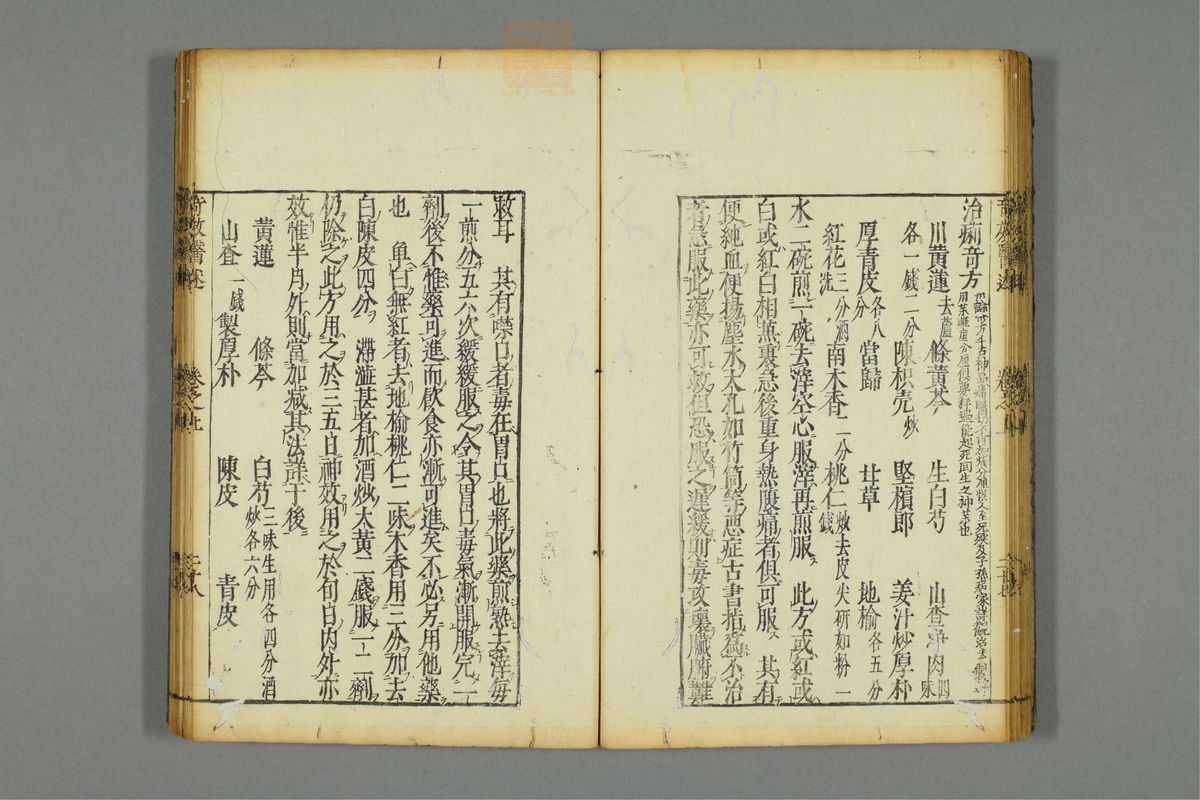 治痢奇方
川黃蓮去蘆 條黃芩 生白芍 山查淨肉四味
各一錢二分陳枳壳炒 堅檳郎 姜汁炒厚朴
厚青皮各八分 當歸 甘草 地榆各五分
紅花三分酒洗 南木香二分桃仁炒去皮尖研如粉一錢
水二碗煎一碗去滓空心服滓再煎服 此方或紅或
白或紅白相蒸裏急後重身熱腹痛者俱可服 其有
便純血便揚塵水大孔如竹筒等惡症古書指爲不治
者急服此藥亦可救但恐服之遲緩則毒攻壞臟腑難
救耳 其有噤口者毒在胃口也將此藥煎熟去滓每
一煎分五六次緩緩服之令其胃口毒氣漸開服完一
劑後不惟藥可進而飮食亦漸可進矣不必另用他藥
也 單白無紅者去地榆桃仁二味木香用三分加去
白陳皮四分 滯澁甚者加酒炒大黃二錢服一二劑
仍除之此方用之於三五日神效用之於旬日內外亦
效惟半月外則當加减其法詳于後
黃蓮 條芩 白芍三味生用各四分酒炒各六分
山查一錢製厚朴 陳皮 青皮
奇效醫述 卷之上 二十八